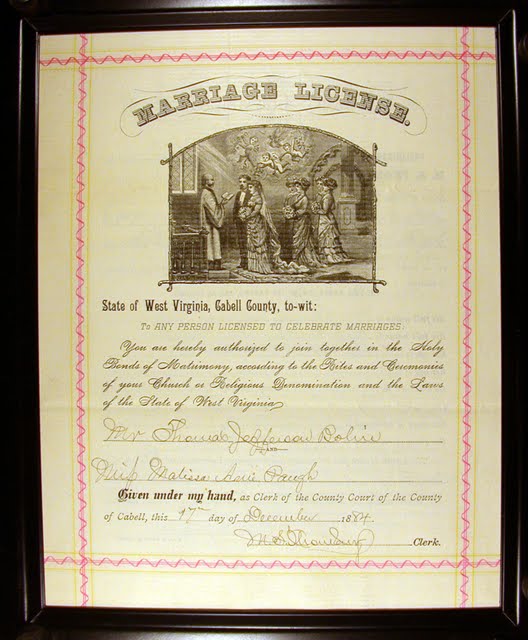 MARRIAGE LICENSE.
State of West Virginia, Cabell County, to-wit:
To ANY PERSON LICENSED TO CELEBRATE MARRIAGES:
You are hereby authorized to join together in the Holy
Bonds of Matrimony, according to the Rites and Ceremonies
of your Church or Religious Denomination and the Laws
of the State of West Virginia
Mr Thomas Jefferson
AND
Miss Malissa
Given under my hand, as Clerk of the County Court of the County
of Cabell, this 17th day of December 1884.
Clerk.